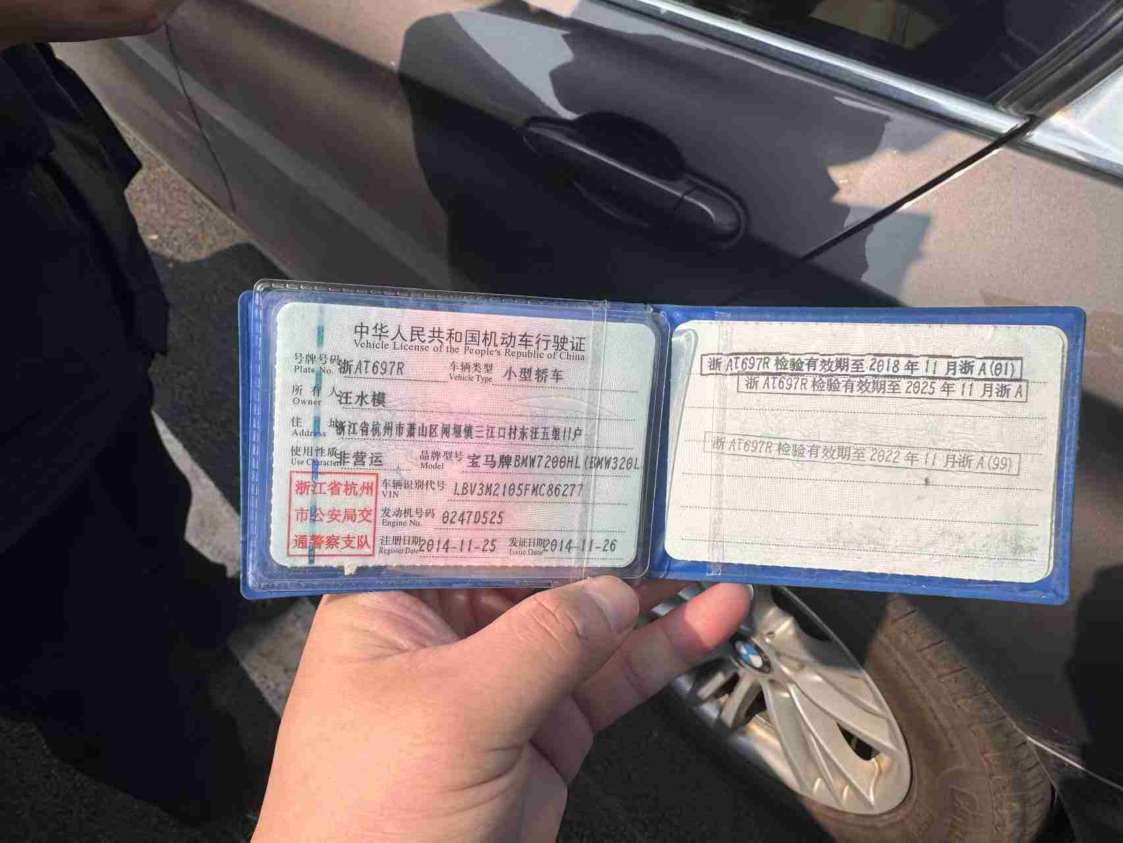 中华人民共和国机动车行驶证
Vehicle License of the People's Republic of China
号牌号码 浙AT697R 车辆类型 小型轿车
Plate No. Vehicle Type
所有人 汪水模
Owner
住址 浙江省杭州市萧山区闻堰镇三江口村东汪五组11户
Address
使用性质 非营运 品牌型号 宝马牌BMW7200HL(BMW320L
Use Character Model
浙江省杭州
市公安局交
通警察支队
车辆识别代号 LBV3M2105FMC86277
VIN
发动机号码 0247D525
Engine No.
注册日期 2014-11-25 发证日期 2014-11-26
Register Date Issue Date
浙AT697R检验有效期至2018年11月浙A(01)
浙AT697R检验有效期至2025年11月浙A
浙AT697R检验有效期至2022年11月浙A(99)